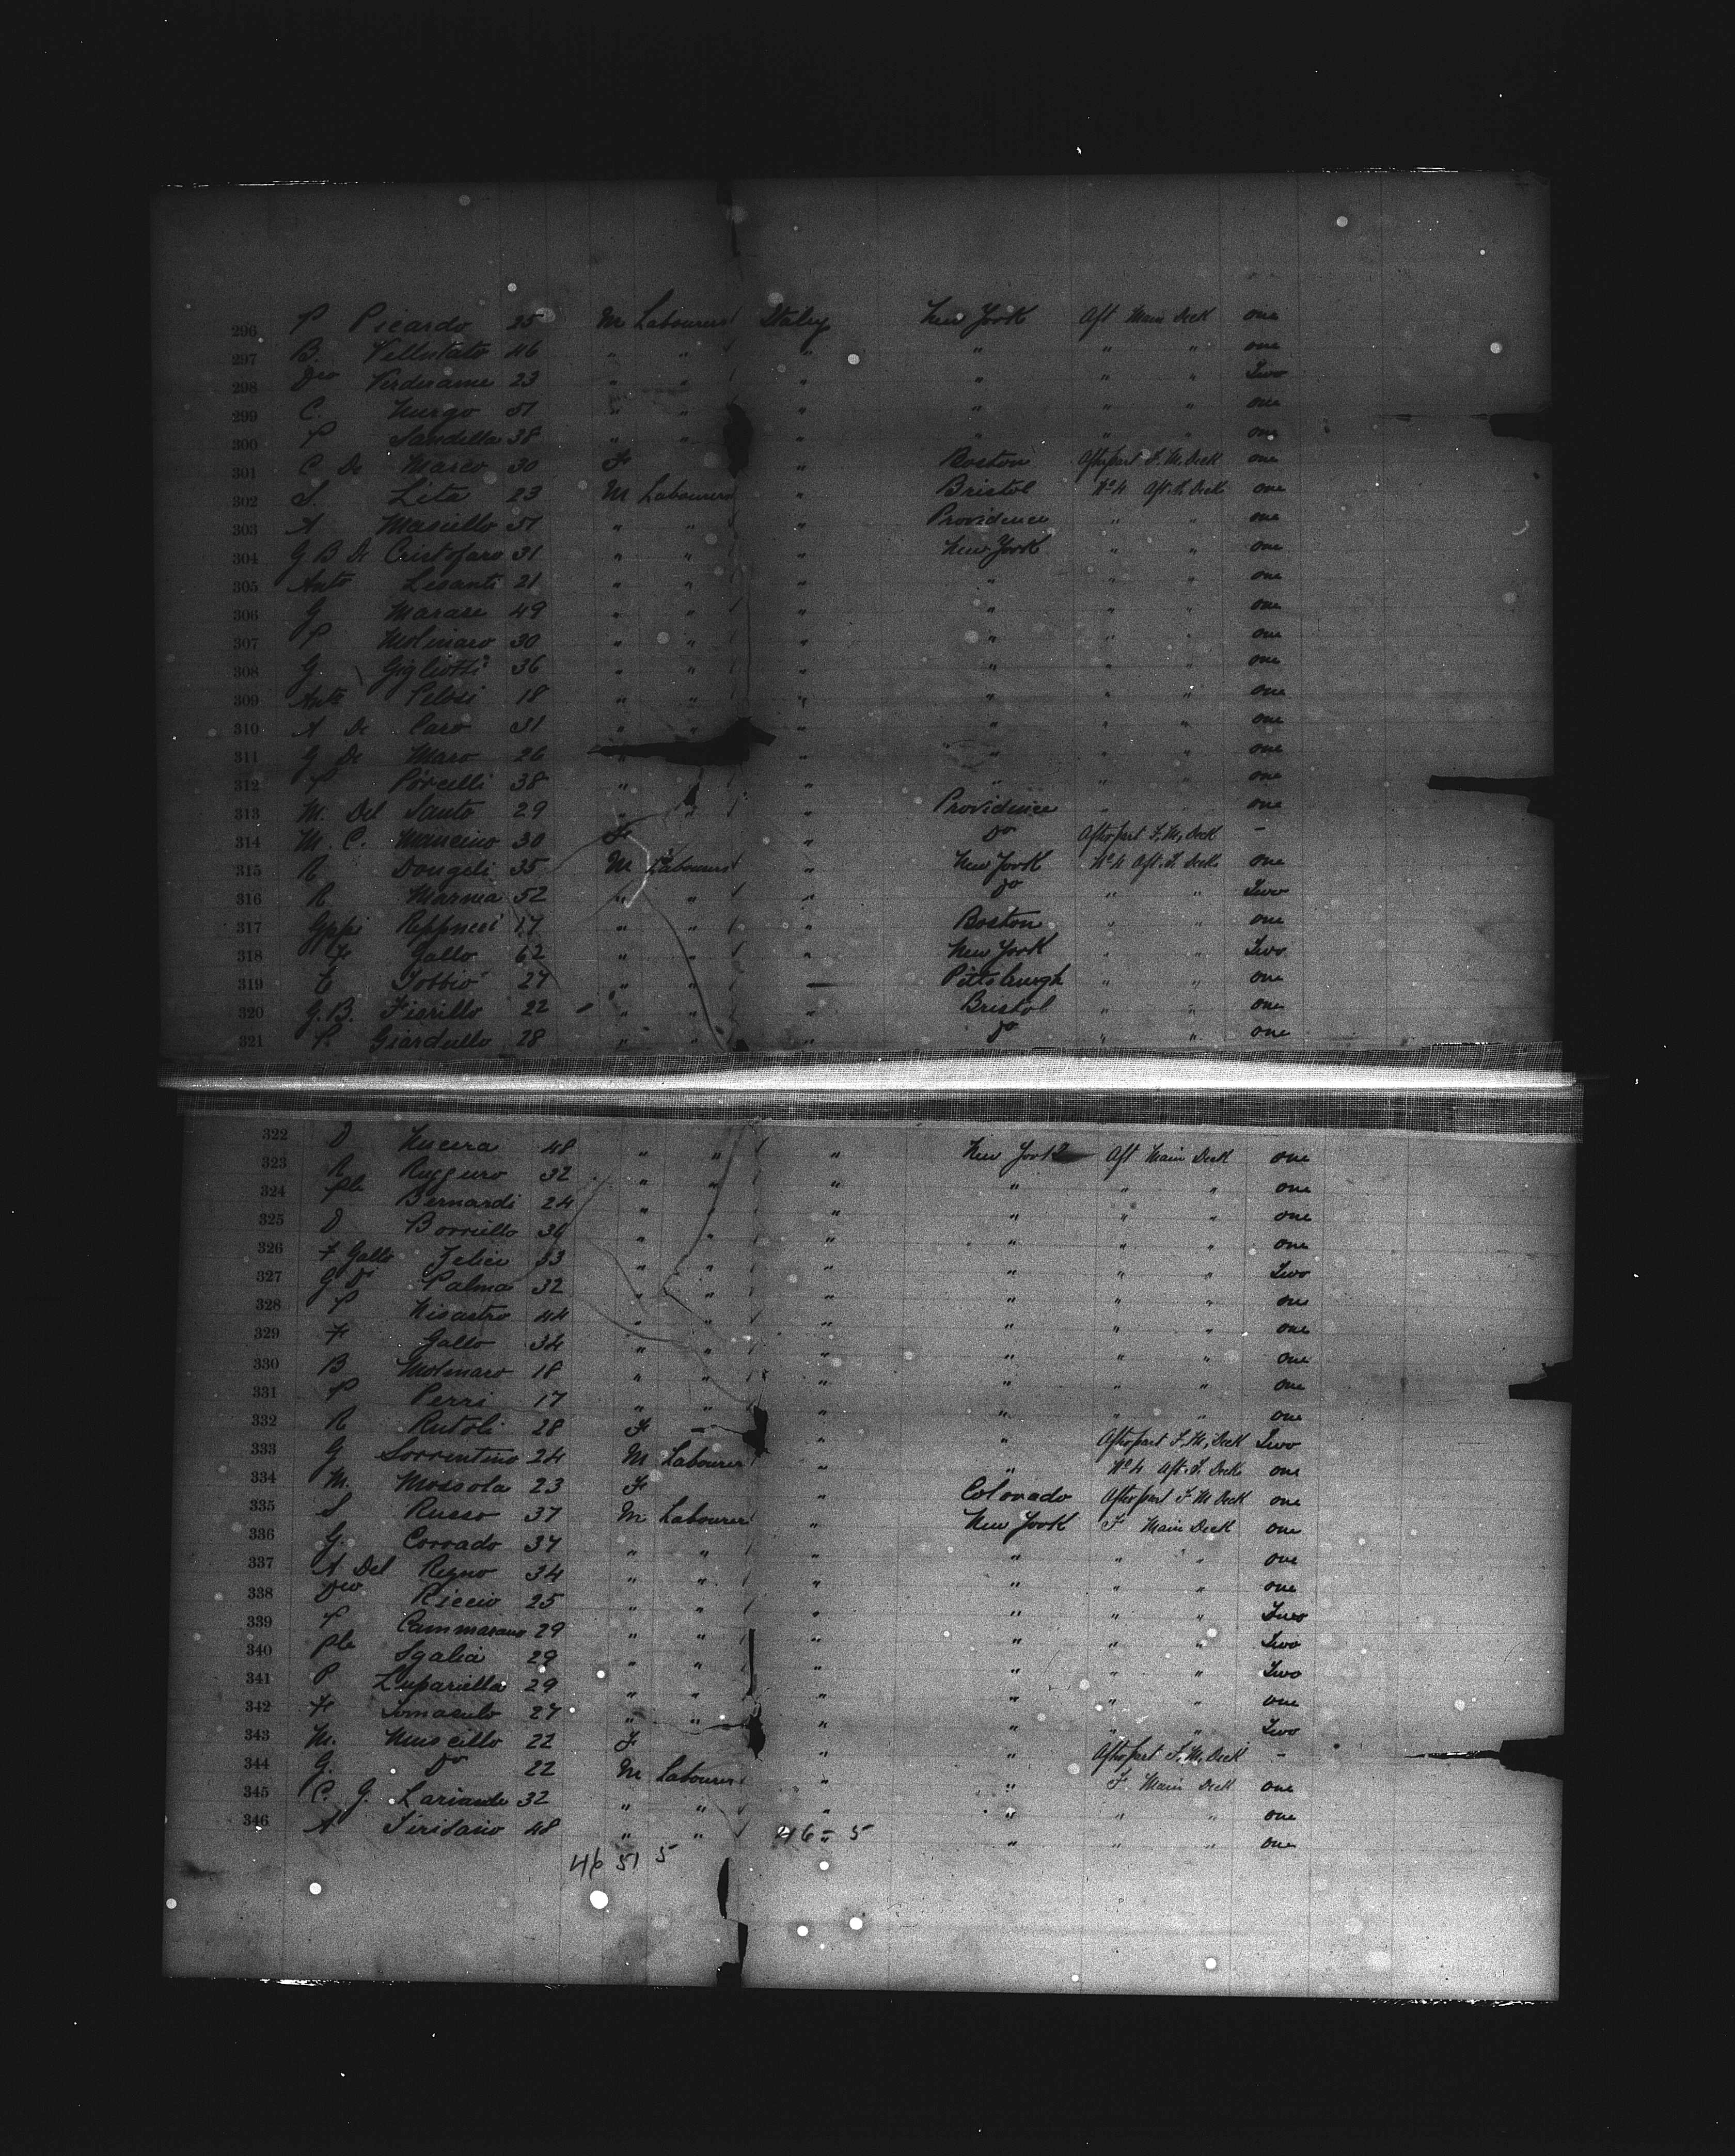 296 P Picardo 25 M Labourer Italy New York Aft Main Deck one
297 B. Vellutato 46 " " " " " " one
298 Dco Verderame 23 " " " " " " Two
299 C. Nurgo 51 " " " " " " one
300 P Sardella 38 " " " " " " one
301 C De Marco 30 F " Boston Afterpart F. M. Deck one
302 S. Zita 23 M Labourer " Bristol No 4 Aft. S. Deck one
303 A Masiello 51 " " " Providence " " one
304 G B De Cristofaro 31 " " " New York " " one
305 Anto Lisanti 21 " " " " " " one
306 G Marase 49 " " " " " " one
307 P Molinaro 30 " " " " " " one
308 G Gigliotti 36 " " " " " " one
309 Anto Pelosi 18 " " " " " " one
310 A De Caro 31 " " " " " " one
311 G De Maso 26 " " " " " one
312 P Porcelli 38 " " " " " " one
313 M. Del Santo 29 " " " Providence " " one
314 M. C. Mancino 30 F " Do Afterpart F. M. Deck -
315 R Dongeli 35 M Labourer " New York No 4 Aft. S. Deck one
316 R Marma 52 " " " Do " " Two
317 Gppe 17 " " " Boston " " one
318 F Gallo 62 " " " New York " " Two
319 C Tobbio 27 " " — Pittsburgh " " one
320 G. B. Fiorillo 22 " " " Bristol " " one
321 P. Giardullo 28 " " " Do " " one
322 D Nucera 48 " " " New York Aft Main Deck one
323 R Ruggero 32 " " " " " " one
324 Ple Bernardi 24 " " " " " " one
325 D Borriello 30 " " " " " " one
326 F Gallo Felice 33 " " " " " " Two
327 G Di Palma 32 " " " " " " one
328 P Nicastro 44 " " " " " " one
329 F Gallo 34 " " " " " " one
330 B Molinaro 18 " " " " " " one
331 P Perri 17 " " " " " " one
332 R Rutoli 28 F - " " Afterpart F. M. Deck Two
333 G Sorrentino 24 M Labourer " " No 4 Aft. S. Deck one
334 M. Mossola 23 F " Colorado Afterpart F M Deck one
335 S Russo 37 M Labourer " New York F Main Deck one
336 G. Corrado 37 " " " " " " one
337 A Del Regno 34 " " " " " " one
338 Dco Riccio 25 " " " " " " Two
339 P Cammarano 29 " " " " " " Two
340 Ple Sgalia 29 " " " " " " Two
341 P Lupariello 29 " " " " " " one
342 F Tomasulo 27 " " " " " " Two
343 M. Muscillo 22 F " " Afterpart F. M. Deck -
344 G. Do 22 M Labourer " " F. Main Deck one
345 C. G. 32 " " " " " " one
346 A 48 " " 46 = 5 " " " one
46 51 5